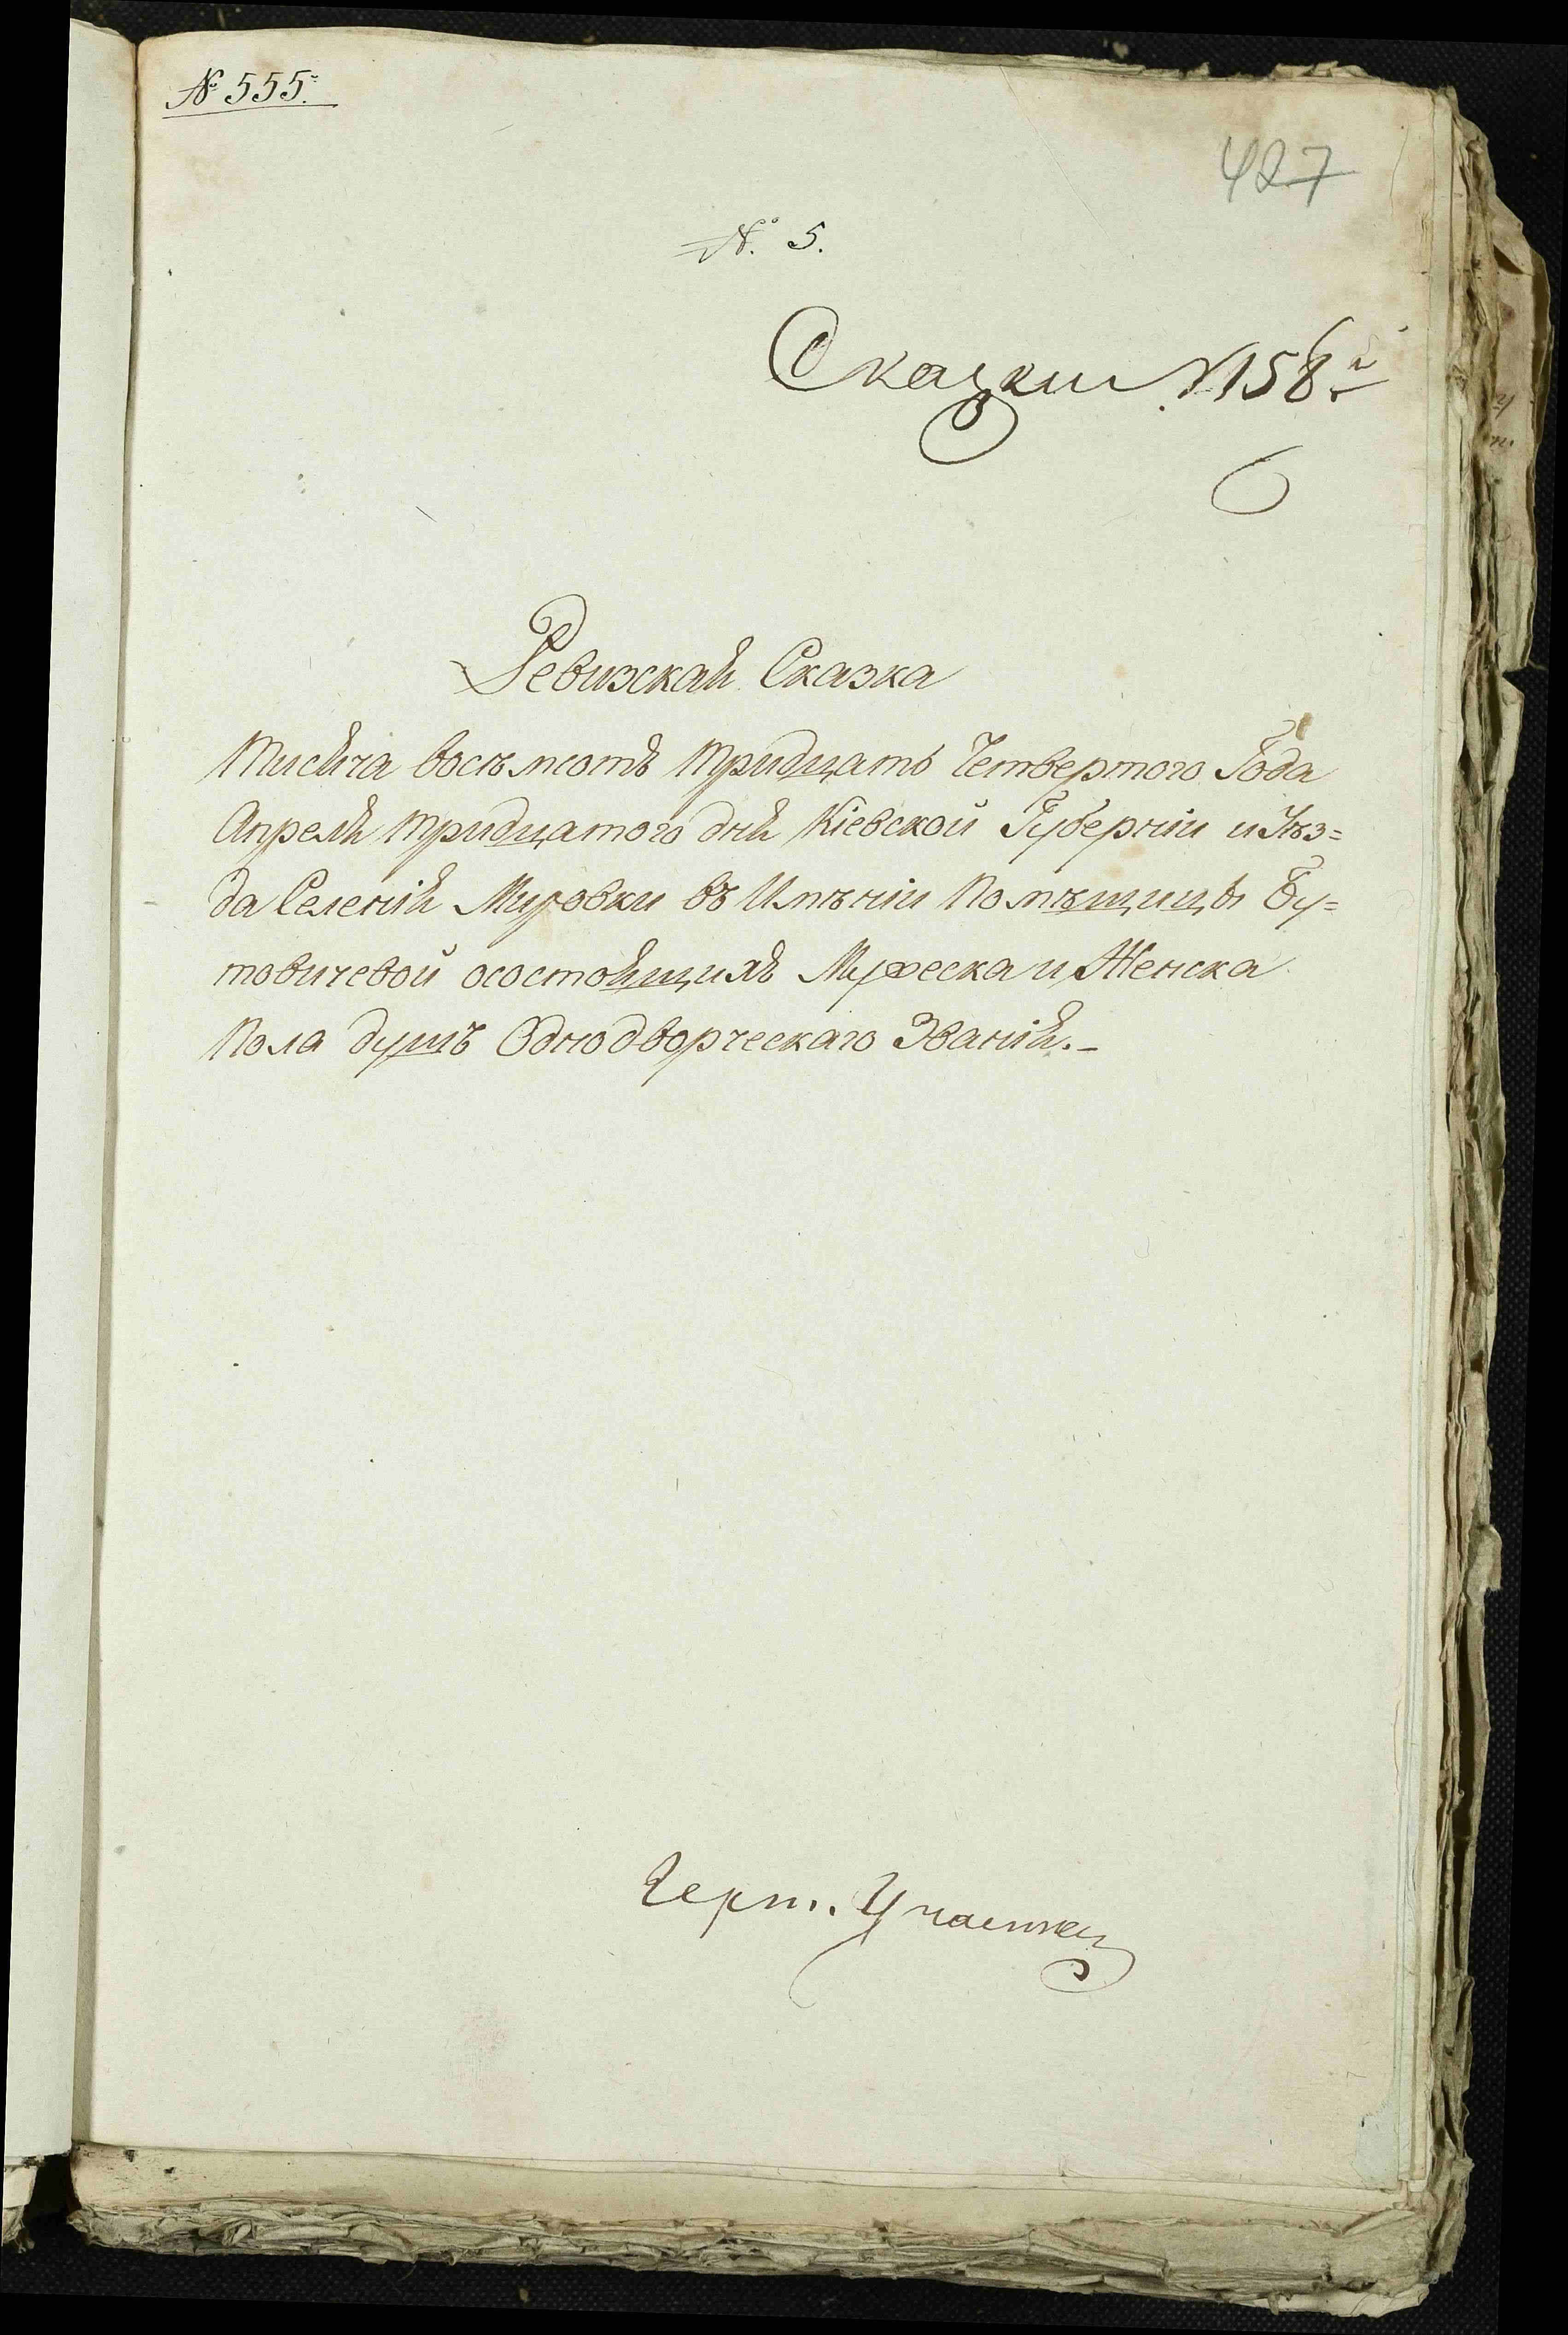 № 555.
427
№ 5.
Сказки № 158й
Ревизская Сказка
Тисяча восѣмсотъ тридцать Четвертого Года
Апреля тридцатого дня Кіевской Губерніи и Уѣз=
да Селенія Мировки въ Имѣніи Помѣщицы Бу=
товичевой осостоящихъ Мужеска и Женска
Пола душъ Однодворческаго Званія.
Черт. Участка